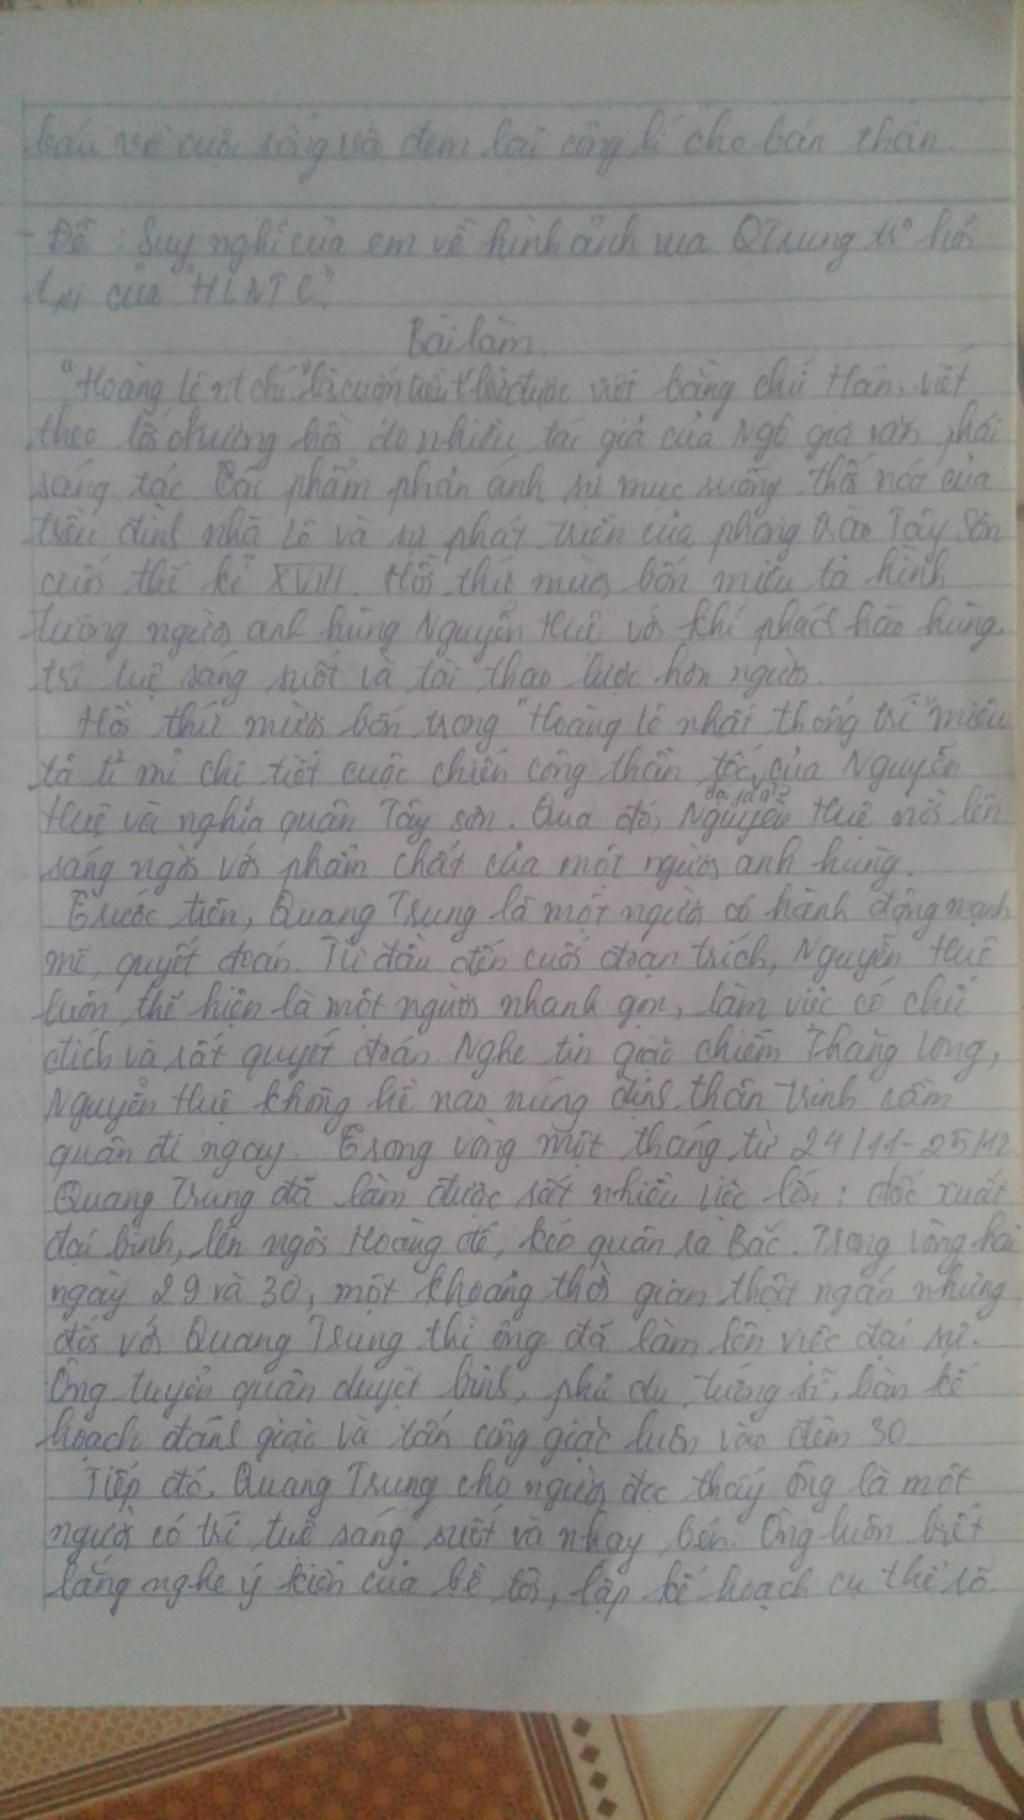 báu về cuộc sống và đem lại công lí cho bản thân.
- Đề : Suy nghĩ của em về hình ảnh vua QTrung hồi
của "HLNTC".
Bài làm.
"Hoàng Lê nt chí" là cuốn tiểu được viết bằng chữ Hán, viết
theo lối chương hồi do nhiều tác giả của Ngô gia văn phái
sáng tác. phẩm phản ánh sự mục ruỗng thối nát của
triều đình nhà Lê và sự phát triển của phong trào Tây Sơn
cuối thế kỉ XVIII. Hồi thứ mười bốn miêu tả hình
tượng người anh hùng Nguyễn Huệ với khí phách hào hùng,
trí tuệ sáng suốt và tài thao lược hơn người.
Hồi thứ mười bốn trong "Hoàng Lê nhất thống trí" miêu
tả tỉ mỉ chi tiết cuộc chiến công thần tốc, của Nguyễn
Huệ và nghĩa quân Tây Sơn. Qua đó, Nguyễn Huệ nổi lên
sáng ngời với phẩm chất của một người anh hùng.
Trước tiên, Quang Trung là một người có hành động mạnh
mẽ, quyết đoán. Từ đầu đến cuối đoạn trích, Nguyễn Huệ
luôn thể hiện là một người nhanh gọn, làm việc có chủ
đích và rất quyết đoán. Nghe tin giặc chiếm Thăng Long,
Nguyễn Huệ không hề nao núng định thân trinh cầm
quân đi ngay. Trong vòng một tháng từ 24/11-25/12
Quang Trung đã làm được rất nhiều việc lớn : đốc xuất
đại binh, lên ngôi Hoàng đế, kéo quân ra Bắc. Trong vòng hai
ngày 29 và 30, một khoảng thời gian thật ngắn nhưng
đối với Quang Trung thì ông đã làm lên việc đại sự.
Ông tuyển quân duyệt binh, phủ dụ tướng sĩ, bàn kế
hoạch đánh giặc và tấn công giặc luôn vào đêm 30.
Tiếp đó, Quang Trung cho người đọc thấy ông là một
người có trí tuệ sáng suốt và nhạy bén. Ông luôn biết
lắng nghe ý kiến của bề tôi, lập kế hoạch cụ thể rõ